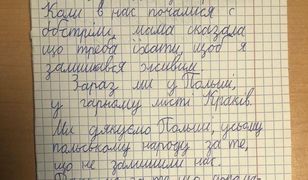 Коли в нас почалися
обстріли, мама сказала
що треба їхати, щоб я
залишався живим.
Зараз ми у Польщі,
у гарному місті Краків.
Ми дякуємо Польщі, усьому
польському народу за те,
що не залишили нас.